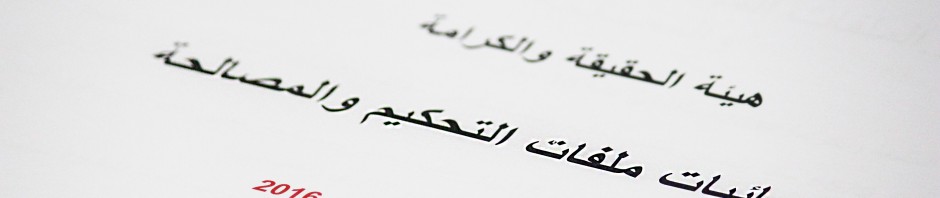 هيئة الحقيقة والكرامة
ملفات التحكيم والمصالحة
2016